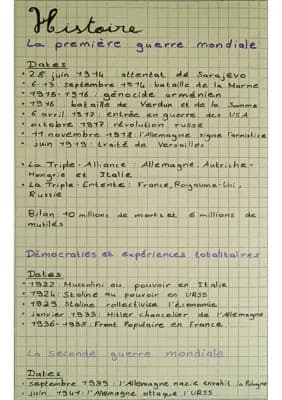 Histoire
La première guerre mondiale
Dates
• 28 juin 1914 attentat de Sarajevo
• 6-13 septembre 1914 : bataille de la Marne
• 1915-1916 génocide arménien
• 1916 bataille de Verdun et de la Somme
• 6 avril 1917 : entrée en guerre des USA
• octobre 1917 révolution russe
• 11 novembre 1918 : l'Allemagne signe l'armistice
• juin 1919 : traité de Versailles
• La Triple-Alliance : Allemagne, Autriche-
Hongrie et Italie
• La Triple-Entente : France, Royaume-Uni,
Russie
Bilan : 10 millions de morts et 6 millions de
mutilés
Démocraties et expériences totalitaires
Dates
• 1922 : Mussolini au pouvoir en Italie
• 1924 : Staline au pouvoir en URSS
• 1929 Staline collectivise l'économie
• janvier 1933 : Hitler chancelier de l'Allemagne
• 1936-1938 : Front Populaire en France
La seconde guerre mondiale
Dates
• septembre 1939 : l'Allemagne nazie envahit la Pologne
• juin 1941 : l'Allemagne attaque l'URSS